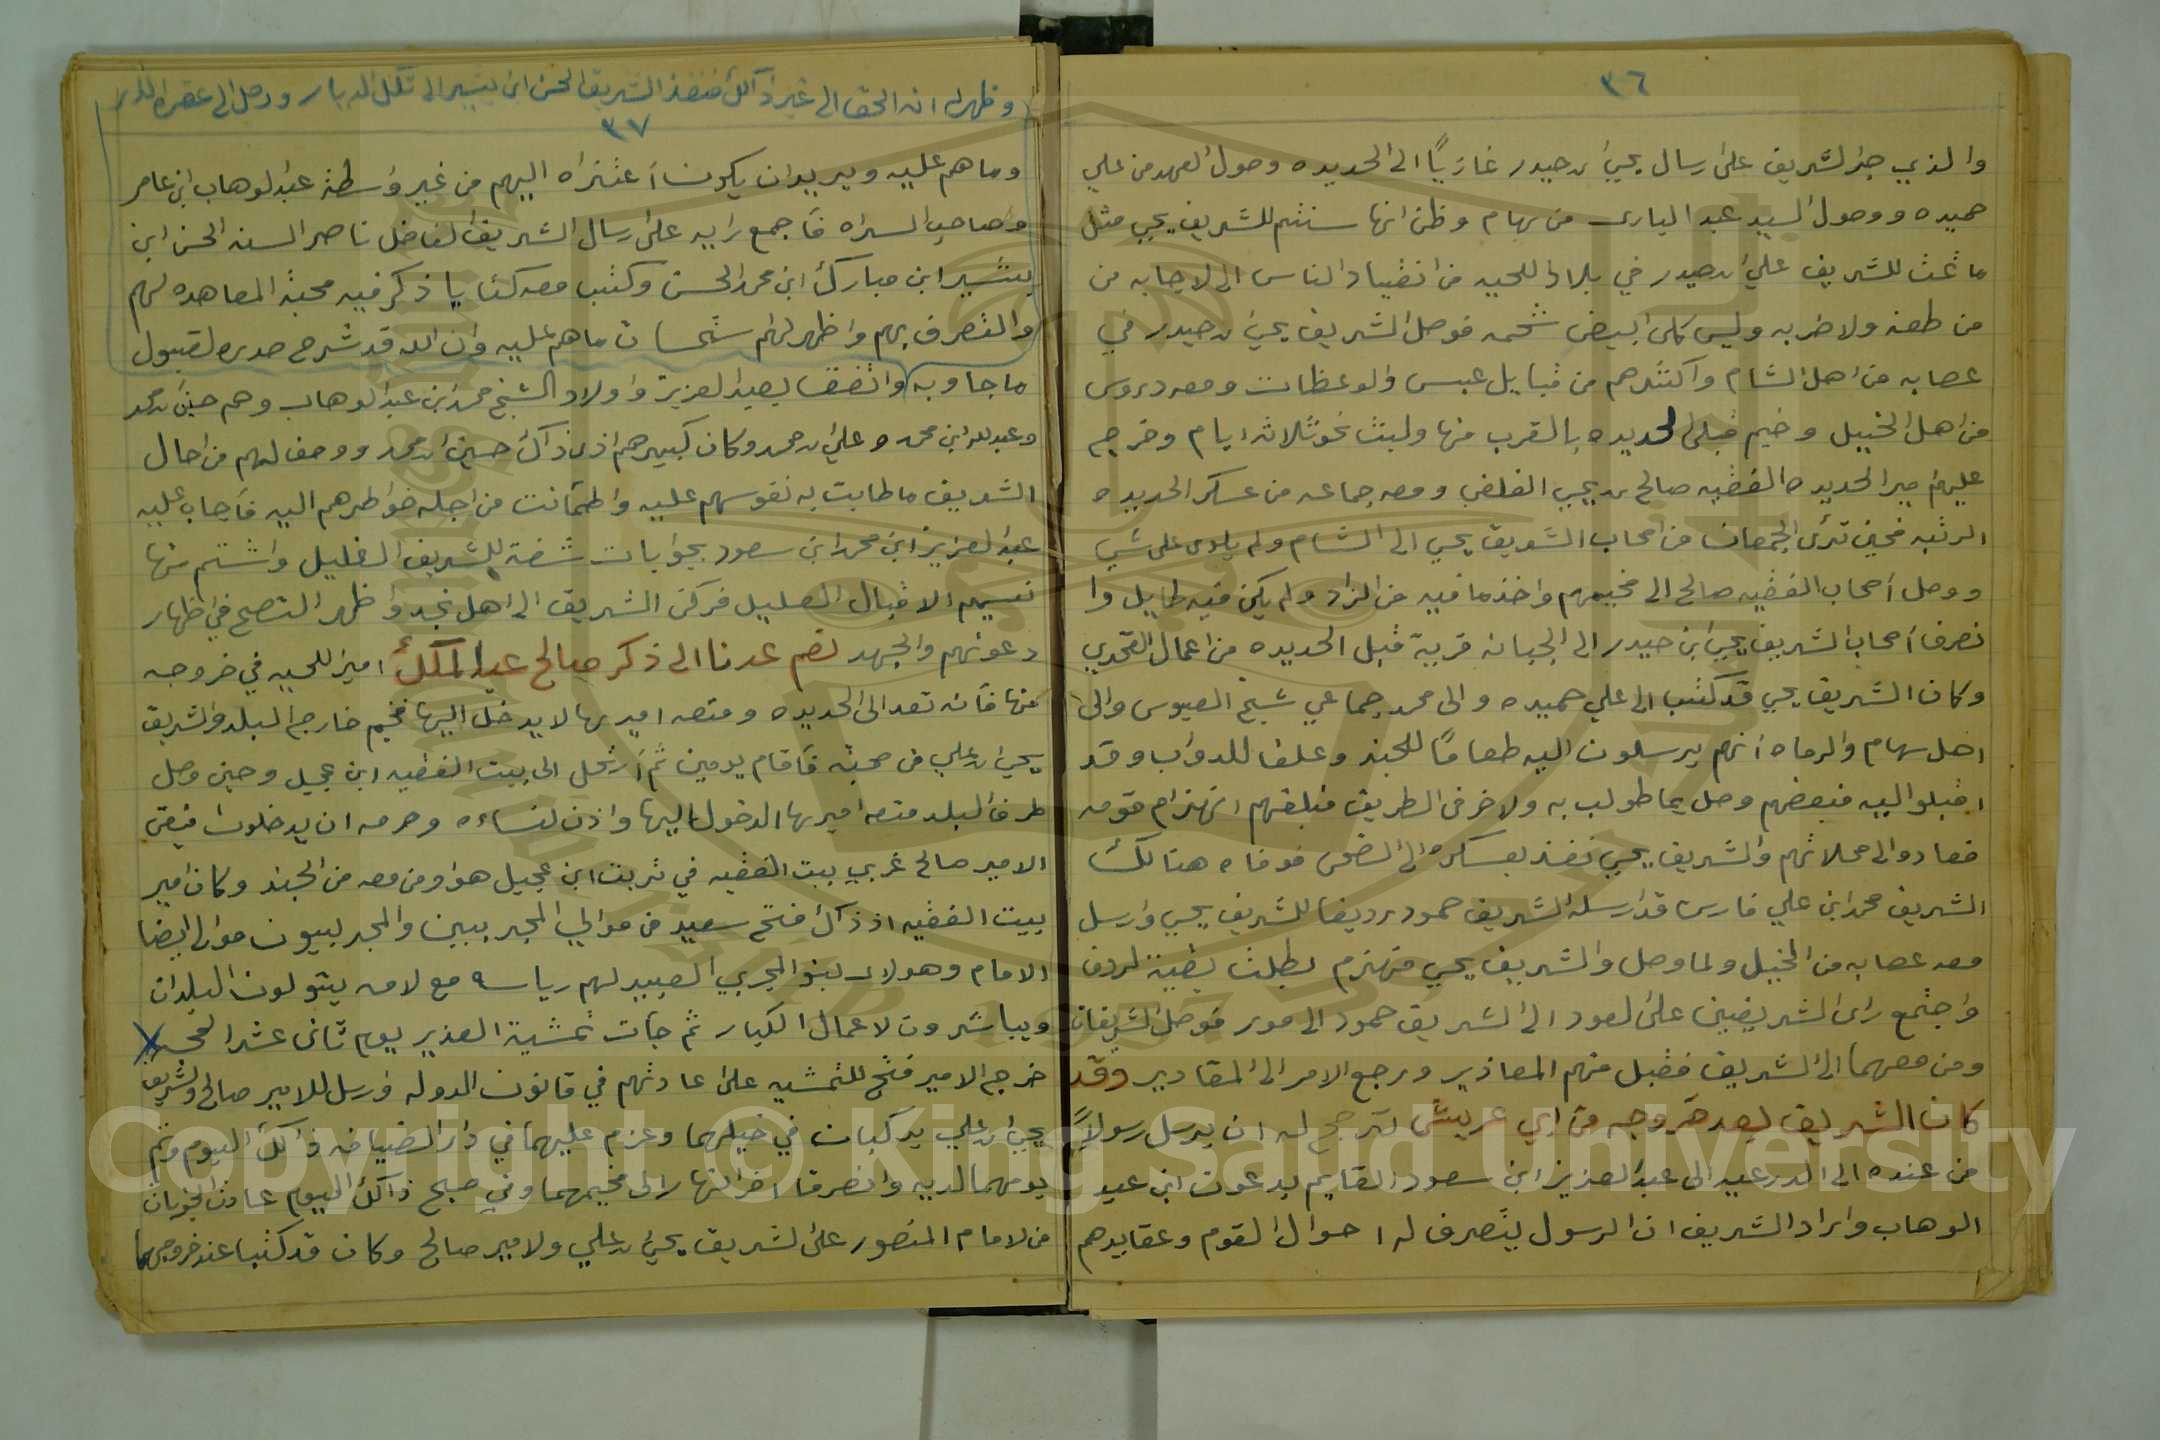 ٣٦
والذي جبر الشريف على ارسال يحيى بن حيدر غازيًا الى الحديده وصول العهد من علي
حميده ووصول السيد عبد البارى من سهام وظن انها ستتم للشريف يحيى مثل
ما تمت للشريف علي بن حيدر في بلاد اللحيه من انقياد الناس الى لاجابه من
من طعنه ولا ضربه وليس كلى ابيض شحمه فوصل الشريف يحيى بن حيدر في
عصابه من اهل الشام واكثرهم من قبايل عبس والوعظات ومعه دروس
من اهل الخيل وخيم قبلى الحديده بالقرب منها ولبث نحو ثلاثه ايام وخرج
عليهم امير الحديده الفقيه صالح بن يحيى الفلفى ومعه جماعه من عسكر الحديده
الرتبه فحين ترأى الجمعان من اصحاب الشريف يحيى الى الشام ولم يلوى على شي
ووصل أصحاب الفقيه صالح الى مخيمهم واخذ ما فيه من الزاد ولم يكن فيه طايل وا
نصرف أصحاب الشريف يحيى ابن حيدر الى الجبانه قرية قبل الحديده من اعمال القحرى
وكان الشريف يحيى قد كتب الى علي حميده والى محمد جماعي شيخ العبوس والى
اهل سهام والرماه انهم يرسلون اليه طعامًا للجند وعلفا للدواب وقد
اقبلوا اليه فبعضهم وصل بما طولب به ولاخر في الطريق فبلغهم انهزام قومه
فعادوا الى محلاتهم والشريف يحيى نفذ بعسكره الى الضحى فوفاه هنالك
الشريف محمد ابن علي فارس قد ارسله الشريف حمود رديفا للشريف يحيى وارسل
معه عصابه من الخيل ولما وصل والشريف يحيى منهزم بطلت بقية لردف
واجتمع راى الشريفين على العود الى الشريف حمود الى مور فوصل الشريفان
ومن معهما الى الشريف فقبل منهم المعاذير ورجع الامر الى المقادير وقد
كان الشريف بعد خروجه من ابي عريش ترجح له ان يرسل رسولاً
من عنده الى الدرعيه الى عبد العزيز ابن سعود القايم بدعوت ابن عبد
الوهاب واراد الشريف ان الرسول يتصرف له احوال القوم وعقايدهم
وظهر له ان الحق الى غير ذالك فنفذ الشريف الحسن ابن بشير الى تلك الديار ووصل الى عقر الدار
٣٧
وما هم عليه ويريد ان يكون أعتزاه اليهم من غير واسطة عبد الوهاب ابن عامر
وصاحب السراه فأجمع رايه على ارسال الشريف الفاضل ناصر السنه الحسن ابن
بشير ابن مبارك ابن محمد الحسن وكتب معه كتابا ذكر فيه محبة المعاهده لهم
والتصرف بهم واظهر لهم ستحسان ما هم عليه وان الله قد شرح صدره لقبول
ما جاو به واتفق بعبد العزيز واولاد الشيخ محمد بن عبد الوهاب وهم حسين بن محمد
وعبد الله ابن محمد وعلي بن محمد وكان كبيرهم اذ ذاك حسين بن محمد ووصف لهم من احال
الشريف ما طابت به نفوسهم عليه واطمأنت من اجله خواطرهم اليه فأجاب عليه
عبد العزيز ابن محمد ابن سعود بجوابات شفة للشريف الغليل واشتم منها
نسيم الاقبال العليل فركن الشريف الى اهل نجد واظهر النصح في اظهار
دعوتهم والجهد نضم عدنا الى ذكر صالح عبد الملك امير اللحيه في خروجه
منها فأنه تعد الى الحديده ومنعه اميرها لا يدخل اليها فخيم خارج البلد والشريف
يحيى بن علي من صحبته فأقام يومين ثم أرتحل الى بيت الفقيه ابن عجيل وحين وصل
طرف البلد منعه اميرها الدخول اليها واذن لنساءه وحرمه ان يدخلون فبقى
الامير صالح غربي بيت الفقيه في تربت ابن عجيل هو ومن معه من الجند وكان امير
بيت الفقيه اذ ذاك فتح سعيد من موالي المجربيين والمجربيون موالى ايضا
الامام وهولاى بنو المجربي العبيد لهم رياسه مع لامه يتولون البلدان
ويباشرون لاعمال الكبار ثم جات تمشية الغدير يوم ثانى عشر الحجه
خرج الامير فتح للتمشيه على عادتهم في قانون الدوله فرسل للامير صالح والشريف
يحيى بن علي يركبان في خيلهما وعزم عليهما في دار الضيافه ذالك اليوم وتم
يومهما لديه وانصرفا اخر النهار الى مخيمهما وفي صبح ذالك اليوم عاد الجوبان
من لامام المنصور على الشريف يحيى بن علي ولامير صالح وكان قد كتبا عند خروجهما
Copyright © King Saud University